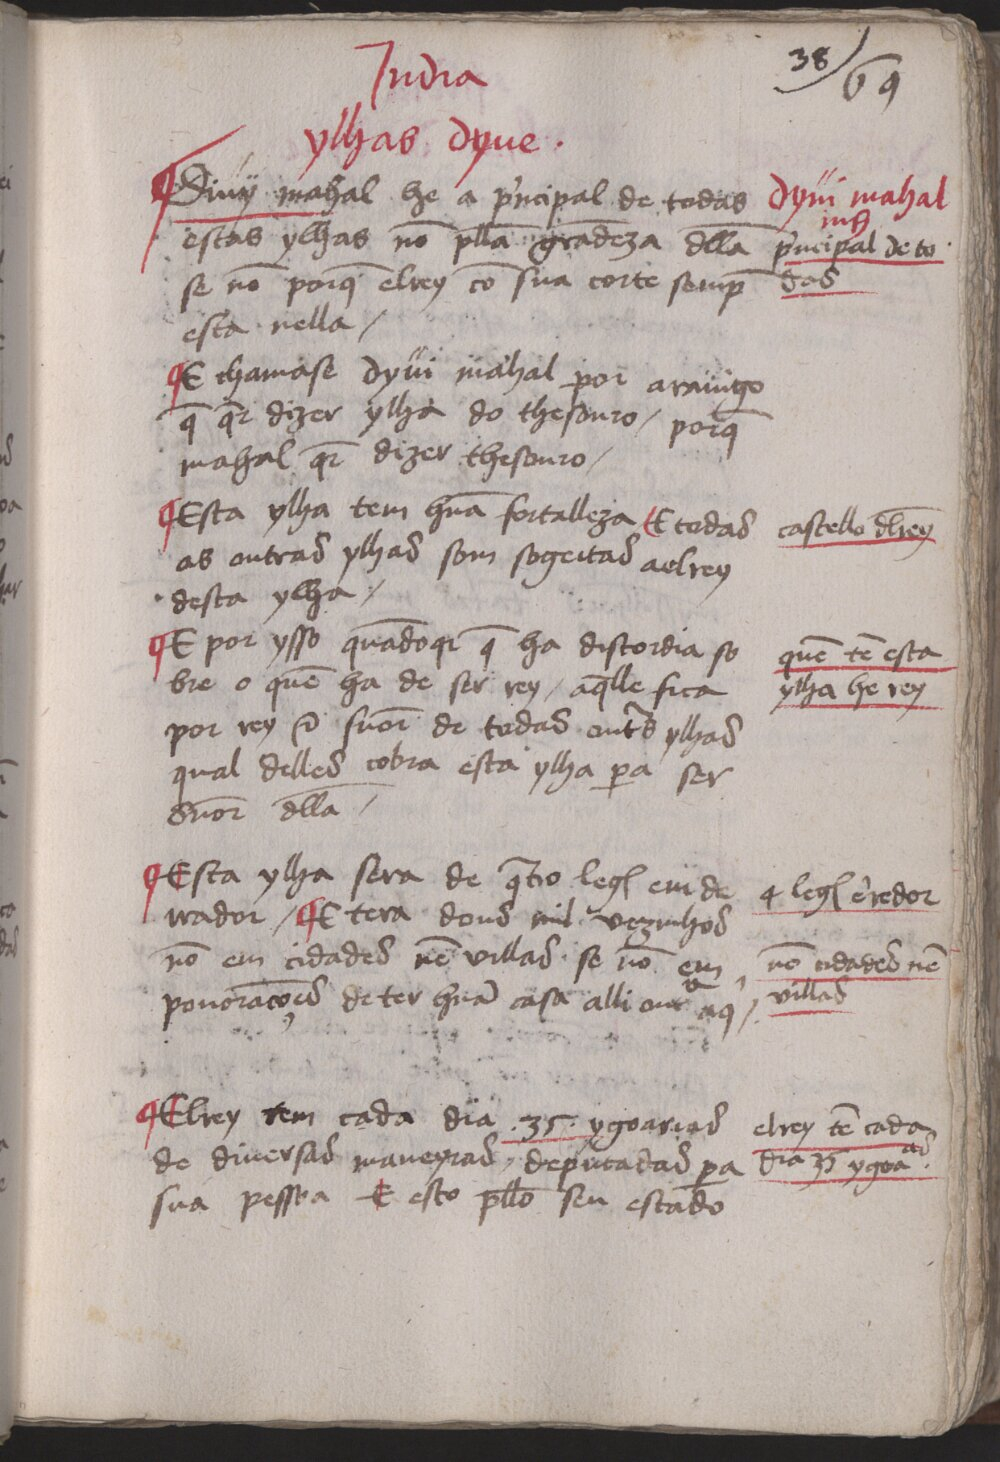 India
38 / 69
ylhas dyue.
¶ Diuÿ mahal he a prĩcipal de todas
estas ylhas nõ pllã grãdeza dllã
se nõ porq̃ elrey cõ sua corte semp̃
esta nella /
dyui mahal
ins
prĩcipal de to
das
¶ E chamase dyui mahal por arauigo
q̃ q̃r dizer ylha do thesouro / porq̃
mahal q̃r dizer thesouro /
¶ Esta ylha tem hũa fortalleza / E todas
as outras ylhas som sogeitas aelrey
desta ylha /
castello dlrey
¶ E por ysso quãdoqr q̃ ha discordia so
bre o quẽ ha de ser rey / aq̃lle fica
por rey & sñor de todas outs ylhas
qual delles cobra esta ylha pa ser
sñor dllã /
quẽ tẽ esta
ylha he rey
¶ Esta ylha sera de q̃tro legs em de
rrador / ¶ E tera dous mil vezinhos
nõ em cidades nẽ villas se nõ em
pouoraçoẽs de ter hũa casa alli out aq' /
4 legs ẽ redor
nõ cidades nẽ
villas
¶ Elrey tem cada dia .35. ygoarias
de diuersas maneyras / deputadas pa
sua pessoa E esto pllõ seu estado
elrey tẽ cada
dia 35 ygoaas.